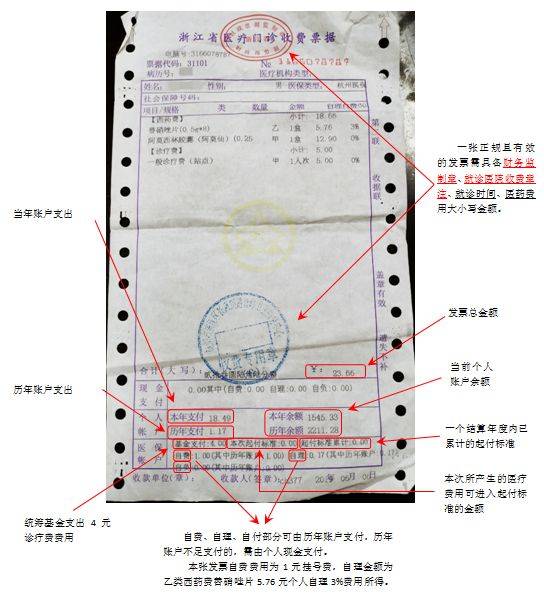 浙江省医疗门诊收费票据
电脑号:3166078787
票据代码:31101
№ 3166078787
病历号:
医疗机构类型:
姓名:
性别:
男 医保类型:
杭州医保
社会保障号码:
项目/规格
类
数量
金额
自理自费(%)
【西药费】
小计: 18.66
替硝唑片(0.5g*8)
乙 1盒
5.76
3%
阿莫西林胶囊(阿莫仙)(0.25
甲 1盒
12.90
0%
【诊疗费】
小计: 5.00
一般诊疗费(站点)
甲 1人次
5.00
0%
第一联
收据联
盖章有效
遗失不补
收费专用章
合计(大写):
¥: 23.66
现金支付
0.00其中(自费:0.00 自理:0.00 自负:0.00)
个人帐户
本年支付 18.49
本年余额 1545.33
历年支付 1.17
历年余额 2211.28
医保帐户
基金支付:4.00 本次起付标准:0.00 起付标准累计:0.00
自费:1.00(其中历年账户:1.00) 自理:0.17(其中历年账户:0.17)
自负:0.00(其中历年账户:0.00)
收款单位(章):
收款人(签章):
一张正规且有效
的发票需具备财务监
制章、就诊医医收费章
注、就诊时间、医药费
用大小写金额。
当年账户支出
发票总金额
当前个人
账户余额
历年账户支出
一个结算年度内已
累计的起付标准
本次所产生的医疗
费用可进入起付标
准的金额
统筹基金支出 4 元
诊疗费费用
自费、自理、自付部分可由历年账户支付,历年
账户不足支付的,需由个人现金支付。
本张发票自费费用为 1 元挂号费,自理金额为
乙类西药费替硝唑片 5.76 元个人自理 3%费用所得。